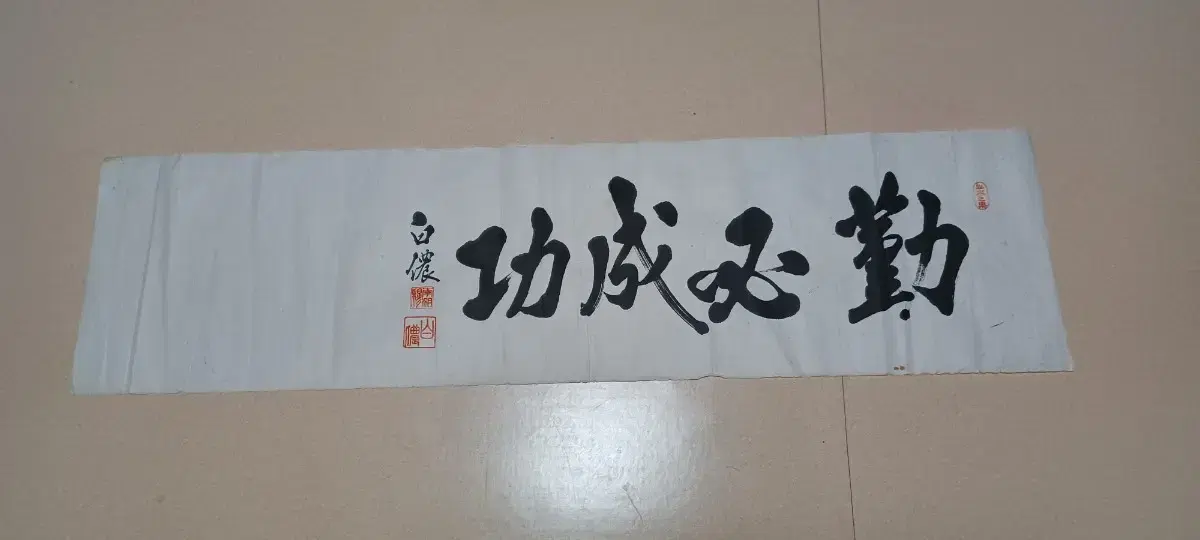 勤必成功
白儂
白儂